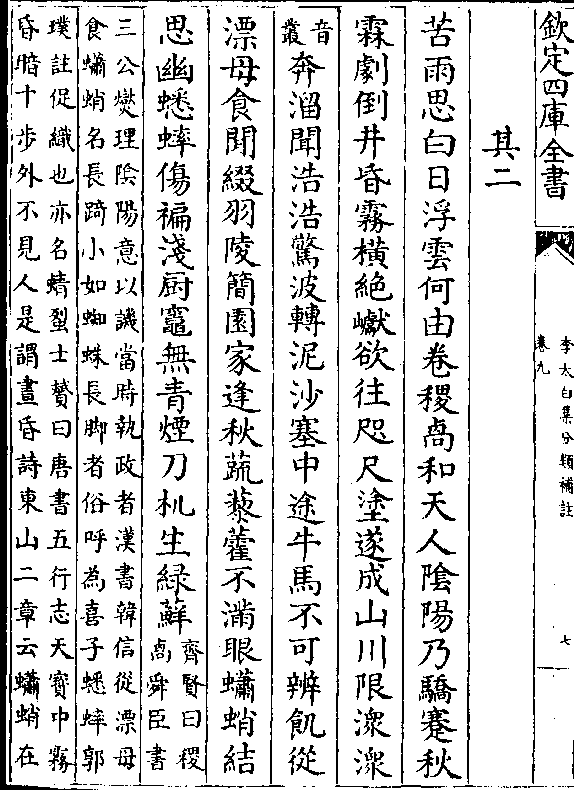 欽定四庫全書
李太白集分類補註
卷九
七
其二
苦雨思白日浮雲何由卷稷卨和天人陰陽乃驕蹇秋
霖劇倒井昏霧橫絕巘欲往咫尺塗遂成山川限潨潨
音叢奔溜聞浩浩驚波轉泥沙塞中途牛馬不可辨飢從
漂母食閒綴羽陵簡園家逢秋蔬藜藿不滿眼蠨蛸結
思幽蟋蟀傷褊淺厨竈無青煙刀机生綠蘚
齊賢曰稷
卨舜臣書
三公燮理陰陽意以譏當時執政者漢書韓信從漂母
食蠨蛸名長踦小如蜘蛛長脚者俗呼為喜子蟋蟀郭
璞註促織也亦名蜻蛚士贇曰唐書五行志天寳中霧
昏暗十步外不見人是謂晝昏詩東山二章云蠨蛸在